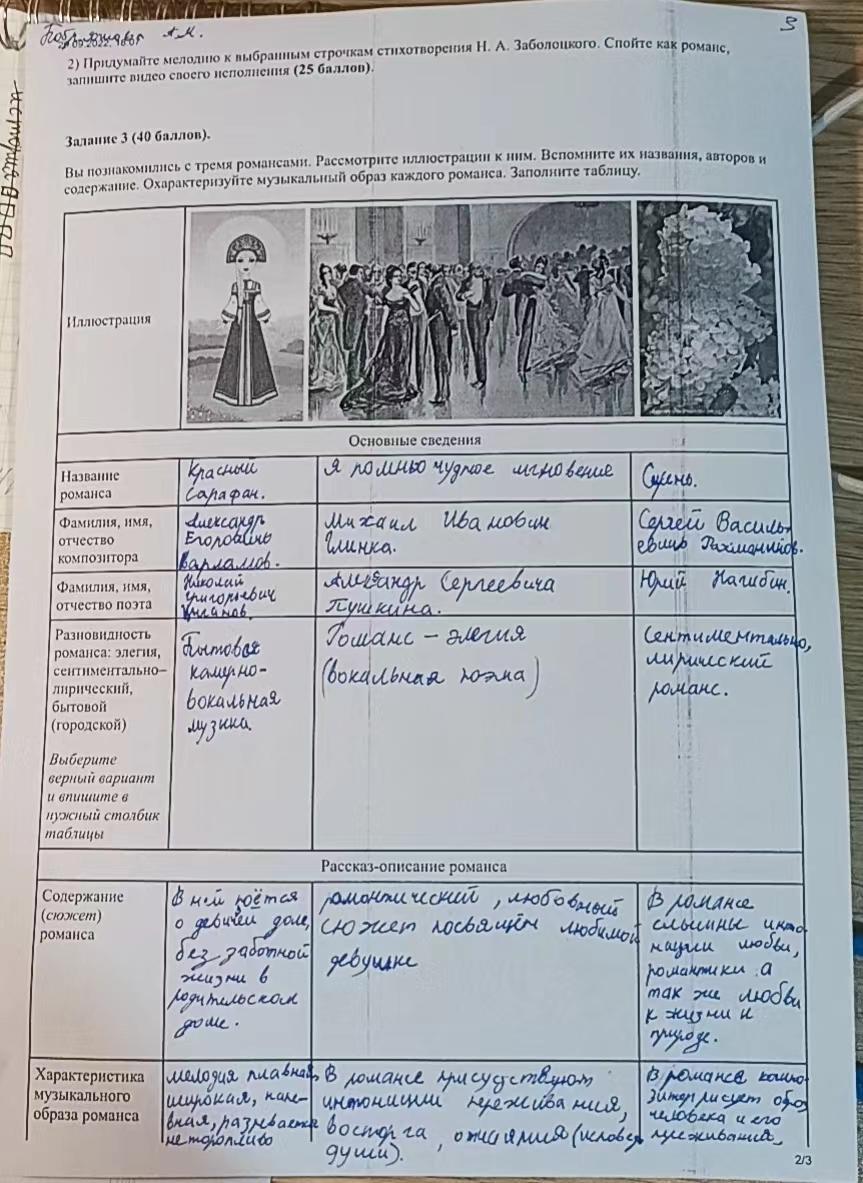 А.М.
3
2) Придумайте мелодию к выбранным строчкам стихотворения Н. А. Заболоцкого. Спойте как романс,
запишите видео своего исполнения (25 баллов).
Задание 3 (40 баллов).
Вы познакомились с тремя романсами. Рассмотрите иллюстрации к ним. Вспомните их названия, авторов и
содержание. Охарактеризуйте музыкальный образ каждого романса. Заполните таблицу.
Иллюстрация
Основные сведения
Название
романса
Красный
Сарафан.
Я помню чудное мгновение
Сирень.
Фамилия, имя,
отчество
композитора
Александр
Егорович
Варламов.
Михаил Иванович
Глинка.
Сергей Василь-
евич Рахманинов.
Фамилия, имя,
отчество поэта
Николай
Григорьевич
Цыганов.
Александр Сергеевича
Пушкина.
Юрий Нагибин.
Разновидность
романса: элегия,
сентиментально–
лирический,
бытовой
(городской)
Выберите
верный вариант
и впишите в
нужный столбик
таблицы
Бытовая
камерно-
вокальная
музыка.
Романс – элегия
(вокальная поэма)
Сентиментально,
лирический
романс.
Рассказ-описание романса
Содержание
(сюжет)
романса
В ней поётся
о девичей доле,
без заботной
жизни в
родительском
доме.
романтический, любовный
сюжет посвящён любимой
девушке
В романсе
слышны инто
нации любви,
романтики а
так же любви
к жизни и
природе.
Характеристика
музыкального
образа романса
мелодия плавная,
широкая, напе-
вная, развивается
неторопливо
В романсе присутствуют
интонации переживания,
восторга,
души).
В романсе компо
зитор рисует образ
человека и его
переживания.
2/3